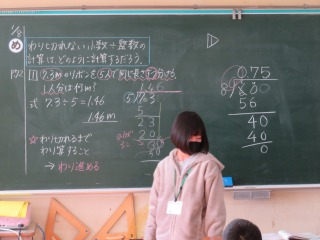 1/8
め わりに切れない小数÷整数の
計算は、どのように計算するだろう。
1 7.3mのリボンを5人で同じ長さずつ分ける。
1人分は何m?
式 7.3÷5=1.46
1.46m
☆わり切れるまで
わり算すること
→わり進める
1.46
5
23
20
30
0.75
56
40
40
0